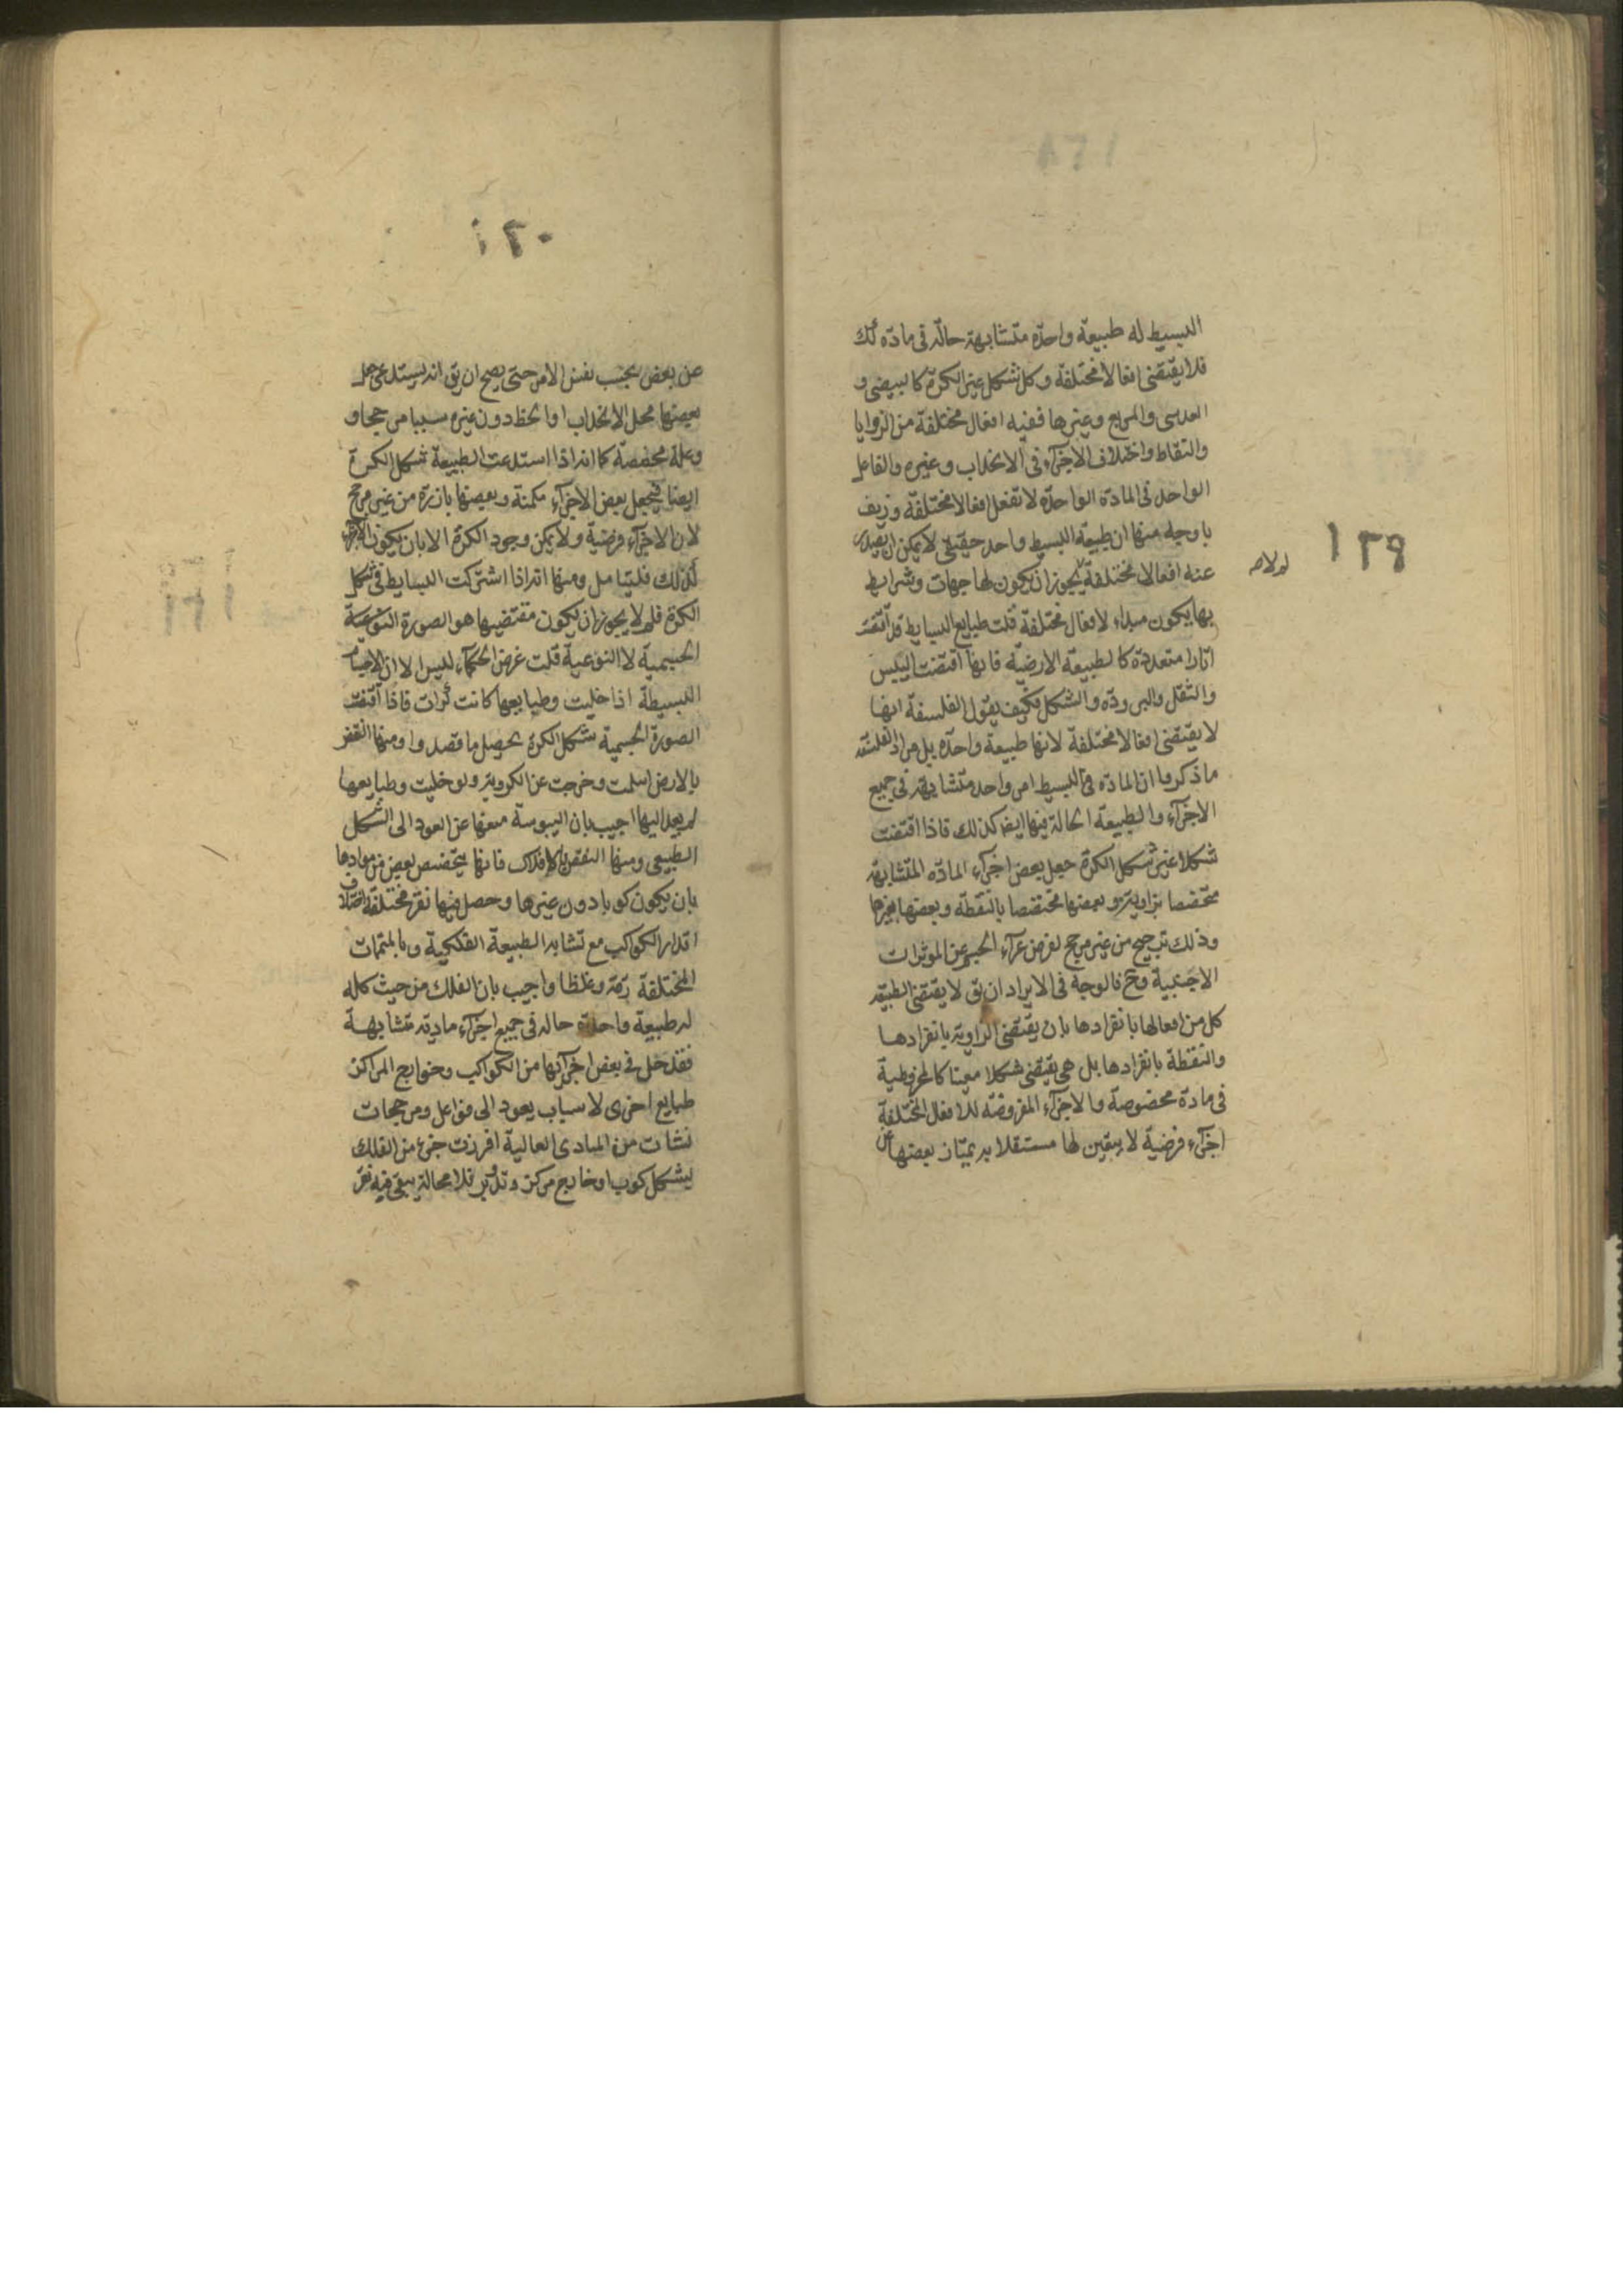 ١٢٩
البسيط له طبيعة واحدة متشابهة حالّة في مادّة كك
فلا يقتضي افعالا مختلفة وكل شكل غير الكرة كالبيضي و
العدسي والمربع وغيرها ففيه افعال مختلفة من الزوايا
والنقاط واختلاف الاجزآء في الانحداب وغيره والفاعل
الواحد في المادة الواحدة لا تفعل افعالا مختلفة وزيف
باوجه منها ان طبيعة البسيط واحد حقيقي لا يمكن ان يصدر
عنه افعالا مختلفة يجوز ان يكون لها جهات وشرايط
لم لا
بها يكون مبداء لافعال مختلفة قلت طبايع البسايط قد اقتضت
اثارا متعددة كالطبيعة الارضيّة فانها اقتضت اليبس
والثقل والبرودة والشكل فكيف يقول الفلسفة انها
لا يقتضي افعالا مختلفة لانها طبيعة واحدة بل مراد الفلسفة
ما ذكروا ان المادّة في البسيط امر واحد متشابهة في جميع
الاجزآء والطبيعة الحالة فيها ايضا كذلك فاذا اقتضت
شكلا غير شكل الكرة جعل بعض اجزآء المادّة المتشابهة
متخصصا بزاوية وبعضها مختصا بالنقطة وبعضها بغيرها
وذلك ترجيح من غير مرجح لفرض عرآء الجسم عن الموثرات
الاجنبية وح فالوجه في الايراد ان يق لا يقتضي الطبيعة
كل من افعالها بانفرادها بان يقتضي الزاوية بانفرادها
والنقطة بانفرادها بل هي يقتضي شكلا معينا كالمخروطية
في مادة مخصوصة والاجزآء المفروضة للافعال المختلفة
اجزآء فرضية لا يتعين لها مستقلا به يمتاز بعضها عن
١٣٠
عن بعض بحسب نفس الامر حتى يصح ان يق انه يستدعي جعل
بعضها محل الانحداب او الخط دون غيره سببا مرجحا و
وعلة مخصصة كما انه اذا استدعت الطبيعة شكل الكرة
ايضا فيجعل بعض الاجزآء مكمنة وبعضها بارزة من غير مرجح
لان الاجزآء فرضية ولا يمكن وجود الكرة الا بان يكون الاجزآء
كذلك فليتامل ومنها انه اذا اشتركت البسايط في شكل
الكرة فلم لا يجوز ان يكون مقتضيها هو الصورة النوعية
الجسمية لا النوعية قلت غرض الحكمآء ليس الا ان الاجسام
البسيطة اذا خليت وطبايعها كانت كرات فاذا اقتضت
الصورة الجسمية شكل الكرة يحصل ما قصدوا ومنها النقض
بالارض اسلمت وخرجت عن الكروية ولو خليت وطبايعها
لم يعد اليها اجيب بان اليبوسة منعها عن العود الى الشكل
الطبيعي ومنها النقض بالافلاك فانها يتخصص بعض من موادها
بان يكون كوبا دون غيرها وحصل فيها نقر مختلفة اختلاف
اقدار الكواكب مع تشابه الطبيعة الفلكية وبالمتممات
المختلفة رقة وغلظا واجيب بان الفلك من حيث كله
له طبيعة واحدة حاله في جميع اجزآء مادية متشابهة
فقد حل في بعض اجزآئها من الكواكب وخوارج المراكز
طبايع اخرى لاسباب يعود الى فواعل ومرجحات
نشات من المبادى العالية افرزت جزء من الفلك
ليشكل كوبا وخارج مركز وتدوير فلا محالة يبقى فيه نقر